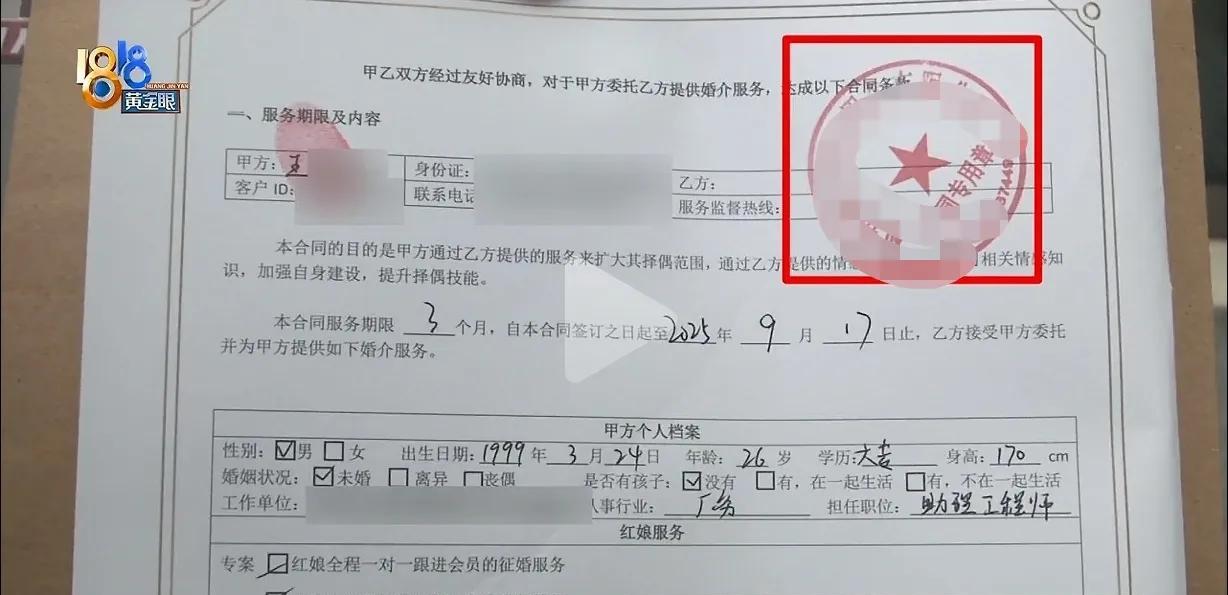 1818
HUANG JIN YAN
黄金眼
甲乙双方经过友好协商，对于甲方委托乙方提供婚介服务，达成以下合同条款
一、服务期限及内容
甲方：王 身份证：
乙方：
客户 ID： 联系电话
服务监督热线：
专用章
37449
本合同的目的是甲方通过乙方提供的服务来扩大其择偶范围，通过乙方提供的情 相关情感知
识，加强自身建设，提升择偶技能。
本合同服务期限 3 个月，自本合同签订之日起至2025年 9 月 17 日止，乙方接受甲方委托
并为甲方提供如下婚介服务。
甲方个人档案
性别：☑男 □女 出生日期：1999年 3 月 24 日 年龄：26 岁 学历：大专 身高：170 cm
婚姻状况：☑未婚 □离异 □丧偶 是否有孩子：☑没有 □有，在一起生活 □有，不在一起生活
工作单位： 人事行业：厂务 担任职位：助理工程师
红娘服务
专案 ☑红娘全程一对一跟进会员的征婚服务